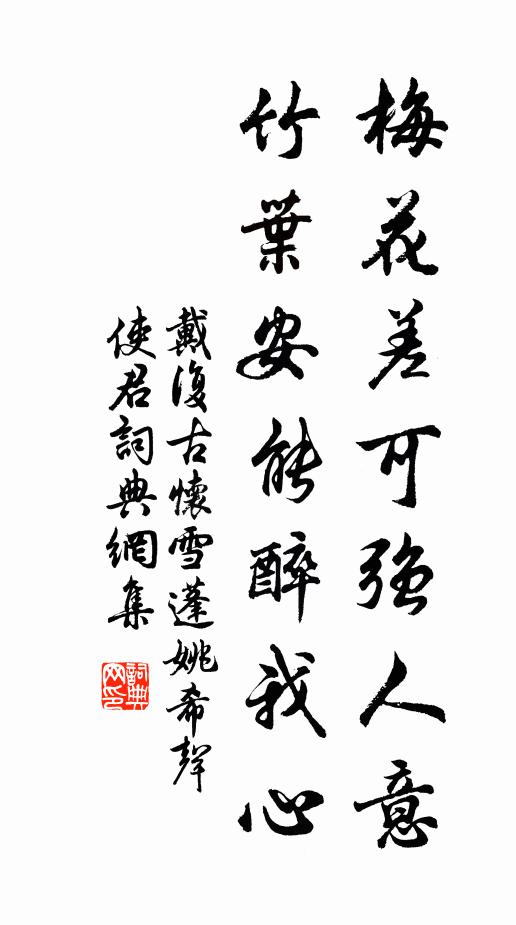 梅花差可強人意
竹葉安能醉我心
戴復古懷雪蓬姚希聲
使君詞典網集
詞典
网印